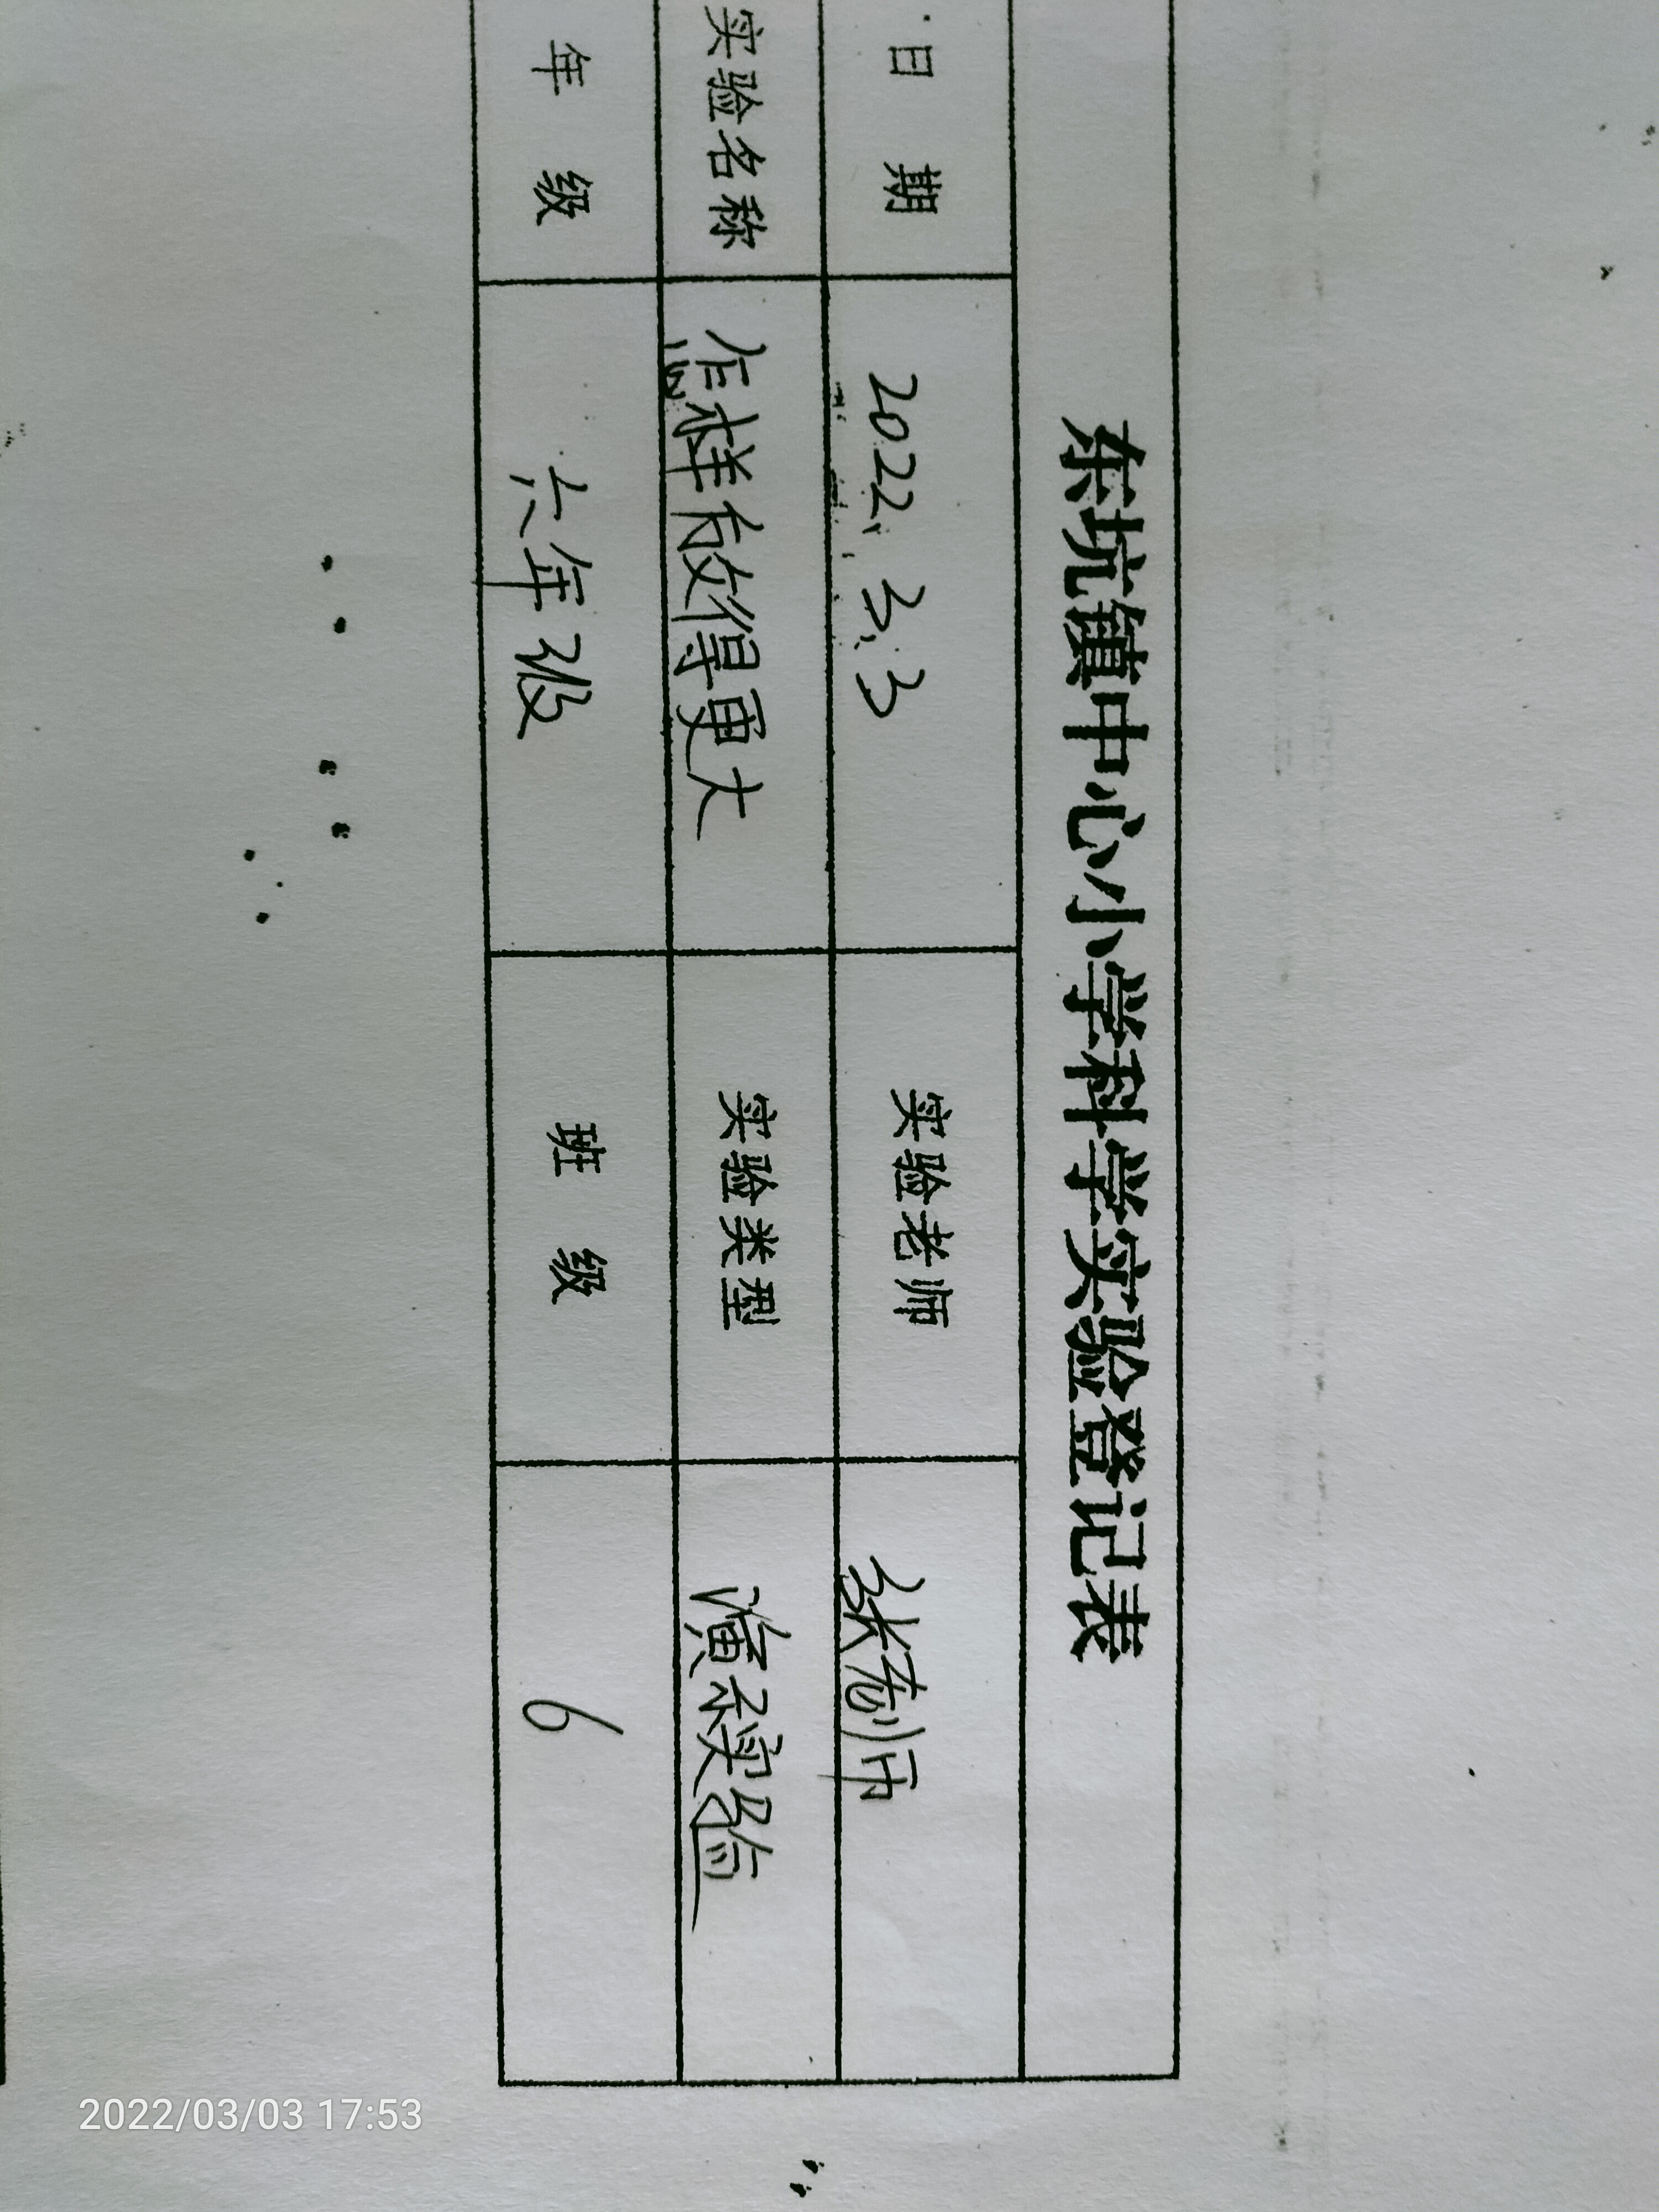 东坑镇中心小学科学实验登记表
日 期 2022.3.3 实验老师 张老师
实验名称 怎样放得更大 实验类型 演示实验
年 级 六年级 班 级 6
2022/03/03 17:53